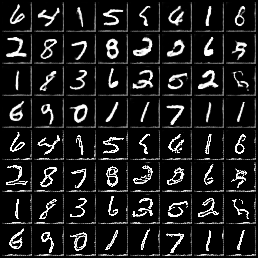 6 4 1 5 9 4 1 6
2 8 7 8 2 2 6 5
1 8 3 6 2 5 2
6 9 0 1 1 7 1 1
6 4 1 5 9 4 1 6
2 8 7 8 2 2 6 5
1 8 3 6 2 5 2
6 9 0 1 1 7 1 1